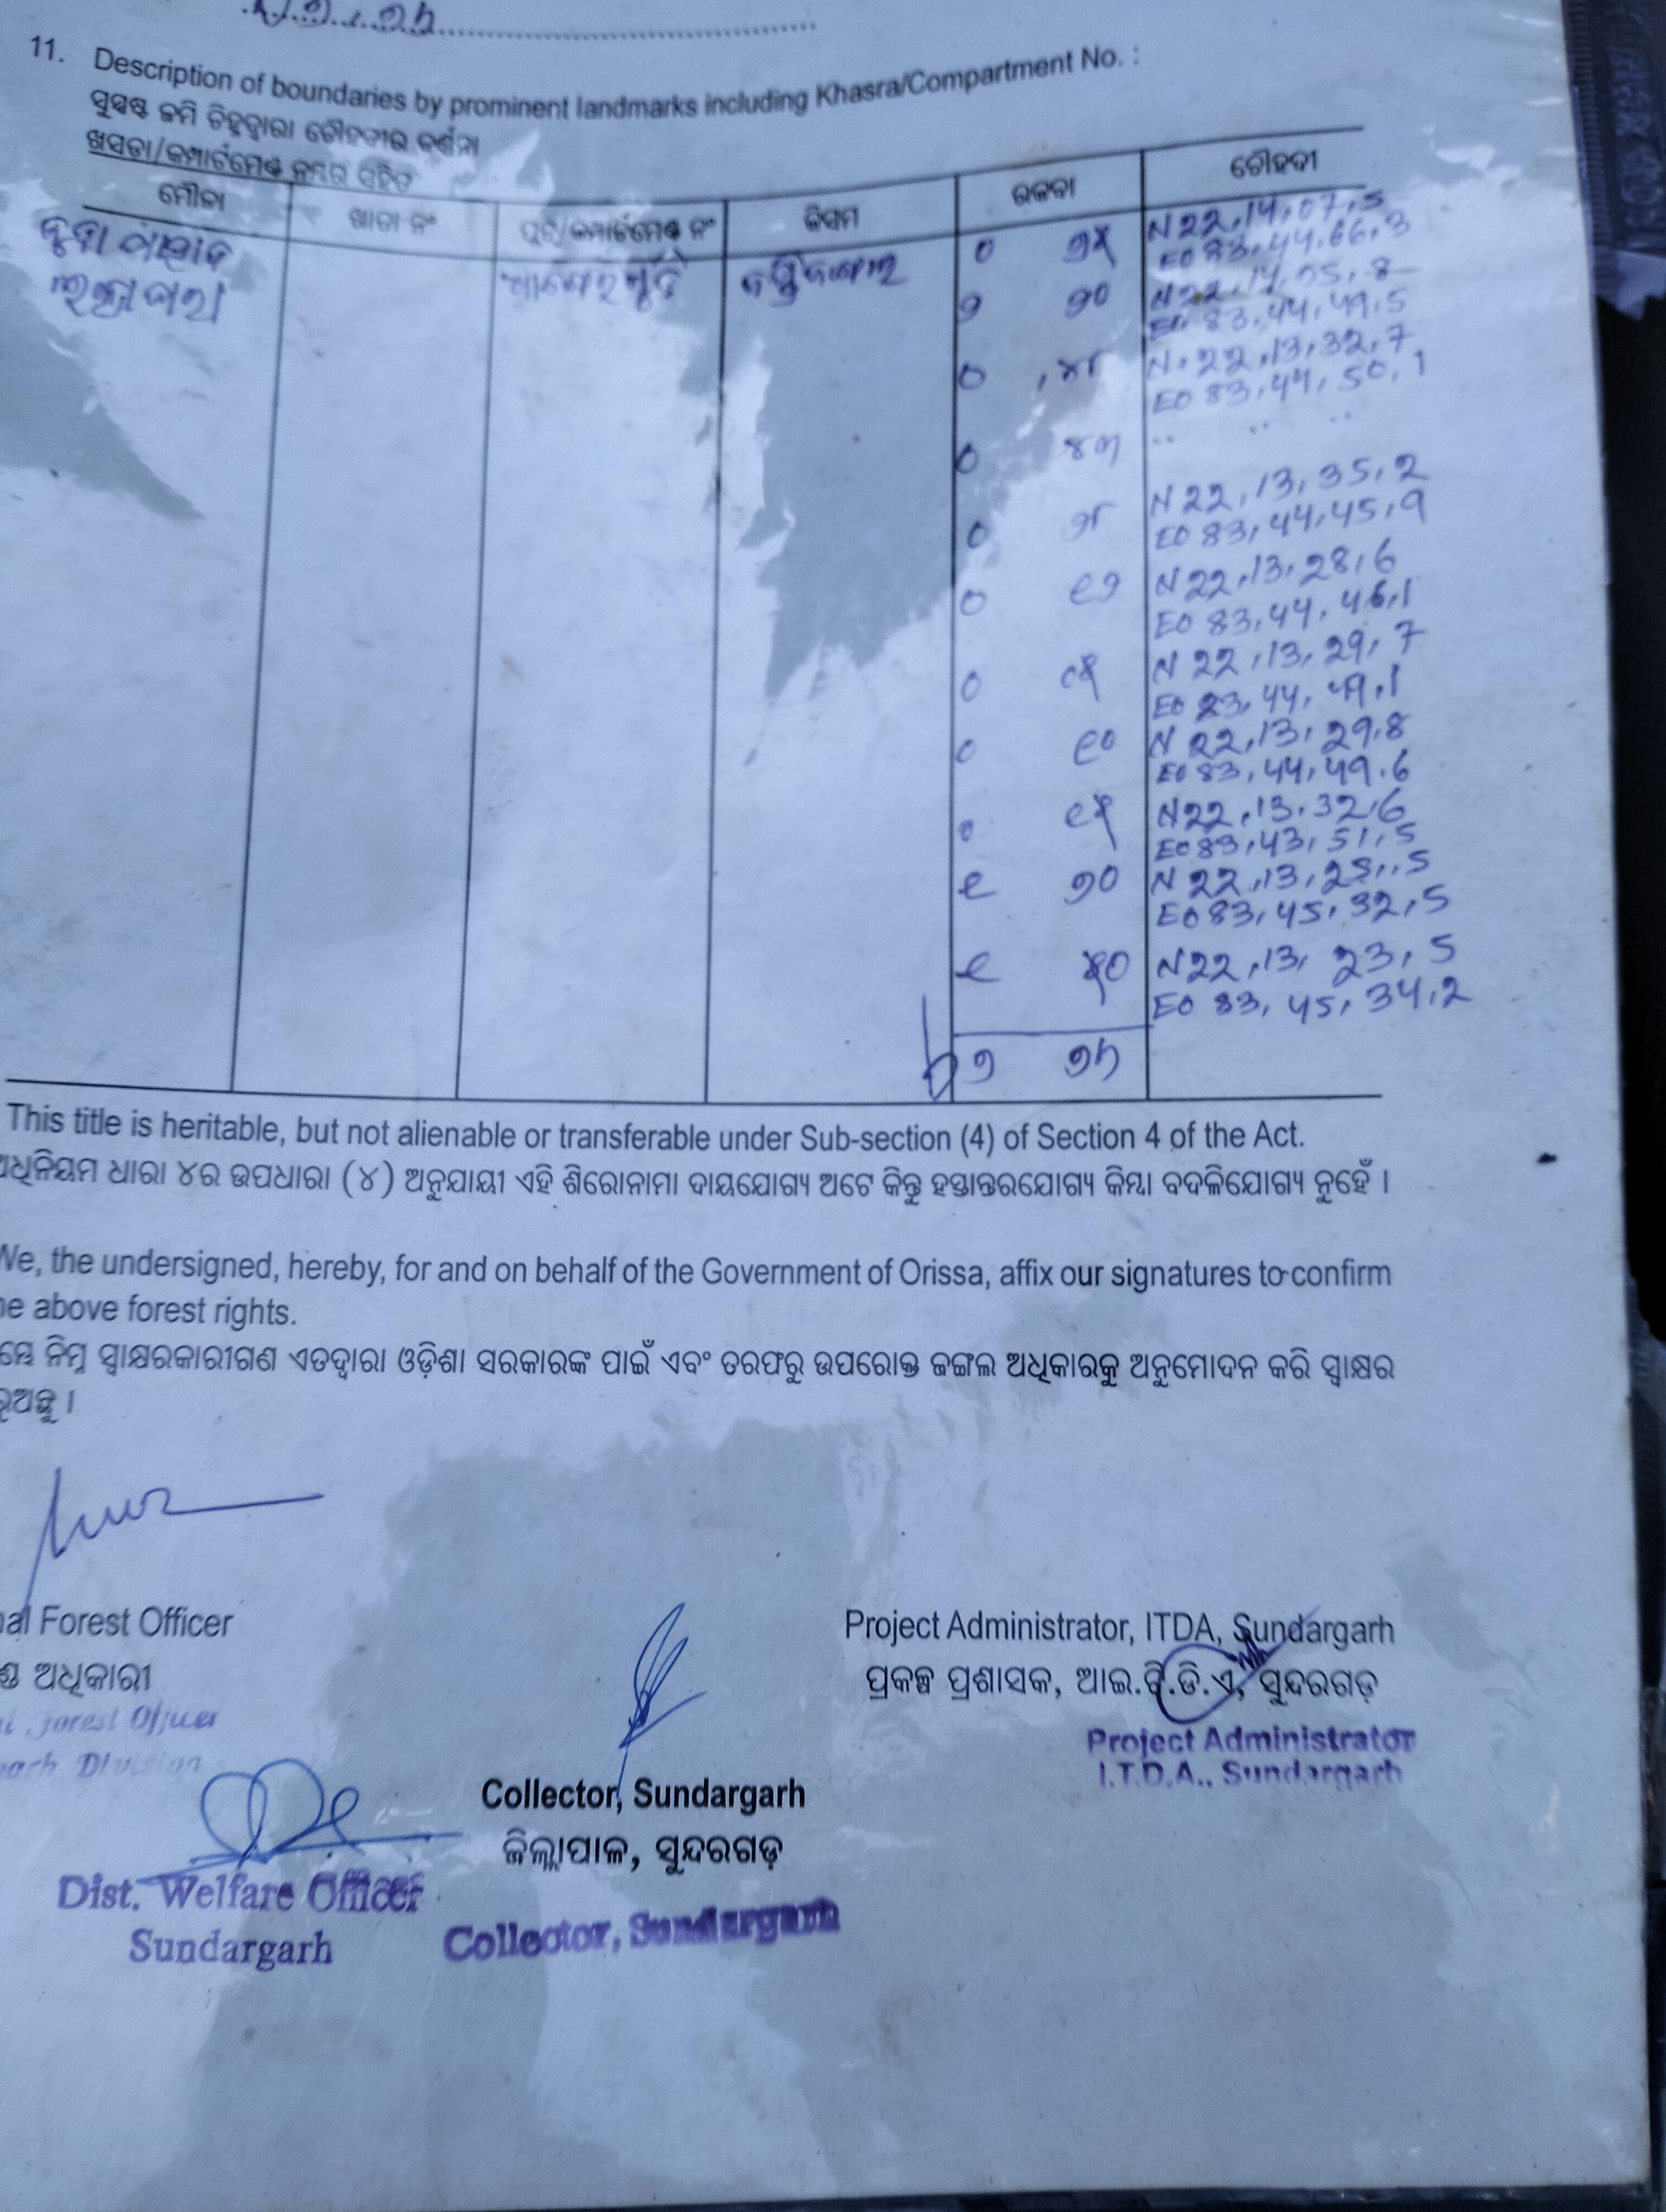 11. Description of boundaries by prominent landmarks including Khasra/Compartment No. :
ସୁସ୍ପଷ୍ଟ ଜମି ଚିହ୍ନଦ୍ୱାରା ଚୌହଦୀର ବର୍ଣ୍ଣନା
ଖସଡା/କମ୍ପାର୍ଟମେଣ୍ଟ ନମ୍ବର ସହିତ
ମୌଜା ଖାତା ନଂ ପ୍ଲଟ/କମ୍ପାର୍ଟମେଣ୍ଟ ନଂ କିସମ ରକବା ଚୌହଦୀ
N 22,14,07,5
E0 83,44,66,3
୨ ୨୦ N 22,14,05,8
E0 83,44,49,5
୦ N. 22,13,32,7
E0 83,44,50,1
୦ ୪୩ .. .. ..
୦ N 22,13,35,2
E0 83,44,45,9
୦ ୧୨ N 22,13,28,6
E0 83,44,46,1
୦ N 22,13,29,7
E0 83,44,49,1
୦ ୧୦ N 22,13,29,8
E0 83,44,49.6
୦ N 22,13.32,6
E0 83,43,51,5
୧ ୨୦ N 22,13,25,.5
E0 83,45,32,5
୧ N 22,13, 23,5
E0 83, 45, 34,2
This title is heritable, but not alienable or transferable under Sub-section (4) of Section 4 of the Act.
ଅଧିନିୟମ ଧାରା ୪ର ଉପଧାରା (୪) ଅନୁଯାୟୀ ଏହି ଶିରୋନାମା ଦାୟଯୋଗ୍ୟ ଅଟେ କିନ୍ତୁ ହସ୍ତାନ୍ତରଯୋଗ୍ୟ କିମ୍ବା ବଦଳିଯୋଗ୍ୟ ନୁହେଁ ।
We, the undersigned, hereby, for and on behalf of the Government of Orissa, affix our signatures to confirm
he above forest rights.
ନିମ୍ନ ସ୍ୱାକ୍ଷରକାରୀଗଣ ଏତଦ୍ୱାରା ଓଡ଼ିଶା ସରକାରଙ୍କ ପାଇଁ ଏବଂ ତରଫରୁ ଉପରୋକ୍ତ ଜଙ୍ଗଲ ଅଧିକାରକୁ ଅନୁମୋଦନ କରି ସ୍ୱାକ୍ଷର
ରୁଅଛୁ ।
nal Forest Officer
ଅଧିକାରୀ
Forest Officer
Division
Project Administrator, ITDA, Sundargarh
ପ୍ରକଳ୍ପ ପ୍ରଶାସକ, ଆଇ.ଟି.ଡି.ଏ, ସୁନ୍ଦରଗଡ଼
Project Administrator
I.T.D.A., Sundargarh
Collector, Sundargarh
ଜିଲ୍ଲାପାଳ, ସୁନ୍ଦରଗଡ଼
Collector, Sundargarh
Dist. Welfare Officer
Sundargarh